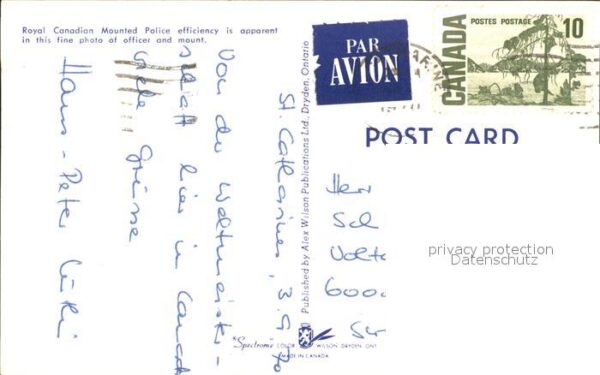 Royal Canadian Mounted Police efficiency is apparent
in this fine photo of officer and mount.
PAR
AVION
POSTES POSTAGE 10
CANADA
POST CARD
St. Catharines, 3.9.70
Von der Weltmeister-
schaft hier in Canada
viele Grüsse
Hans-Peter
Published by Alex Wilson Publications Ltd., Dryden, Ontario
Herr
Sch
Volta
6000
privacy protection
Datenschutz
"Spectrome" COLOR WILSON DRYDEN ONT
MADE IN CANADA